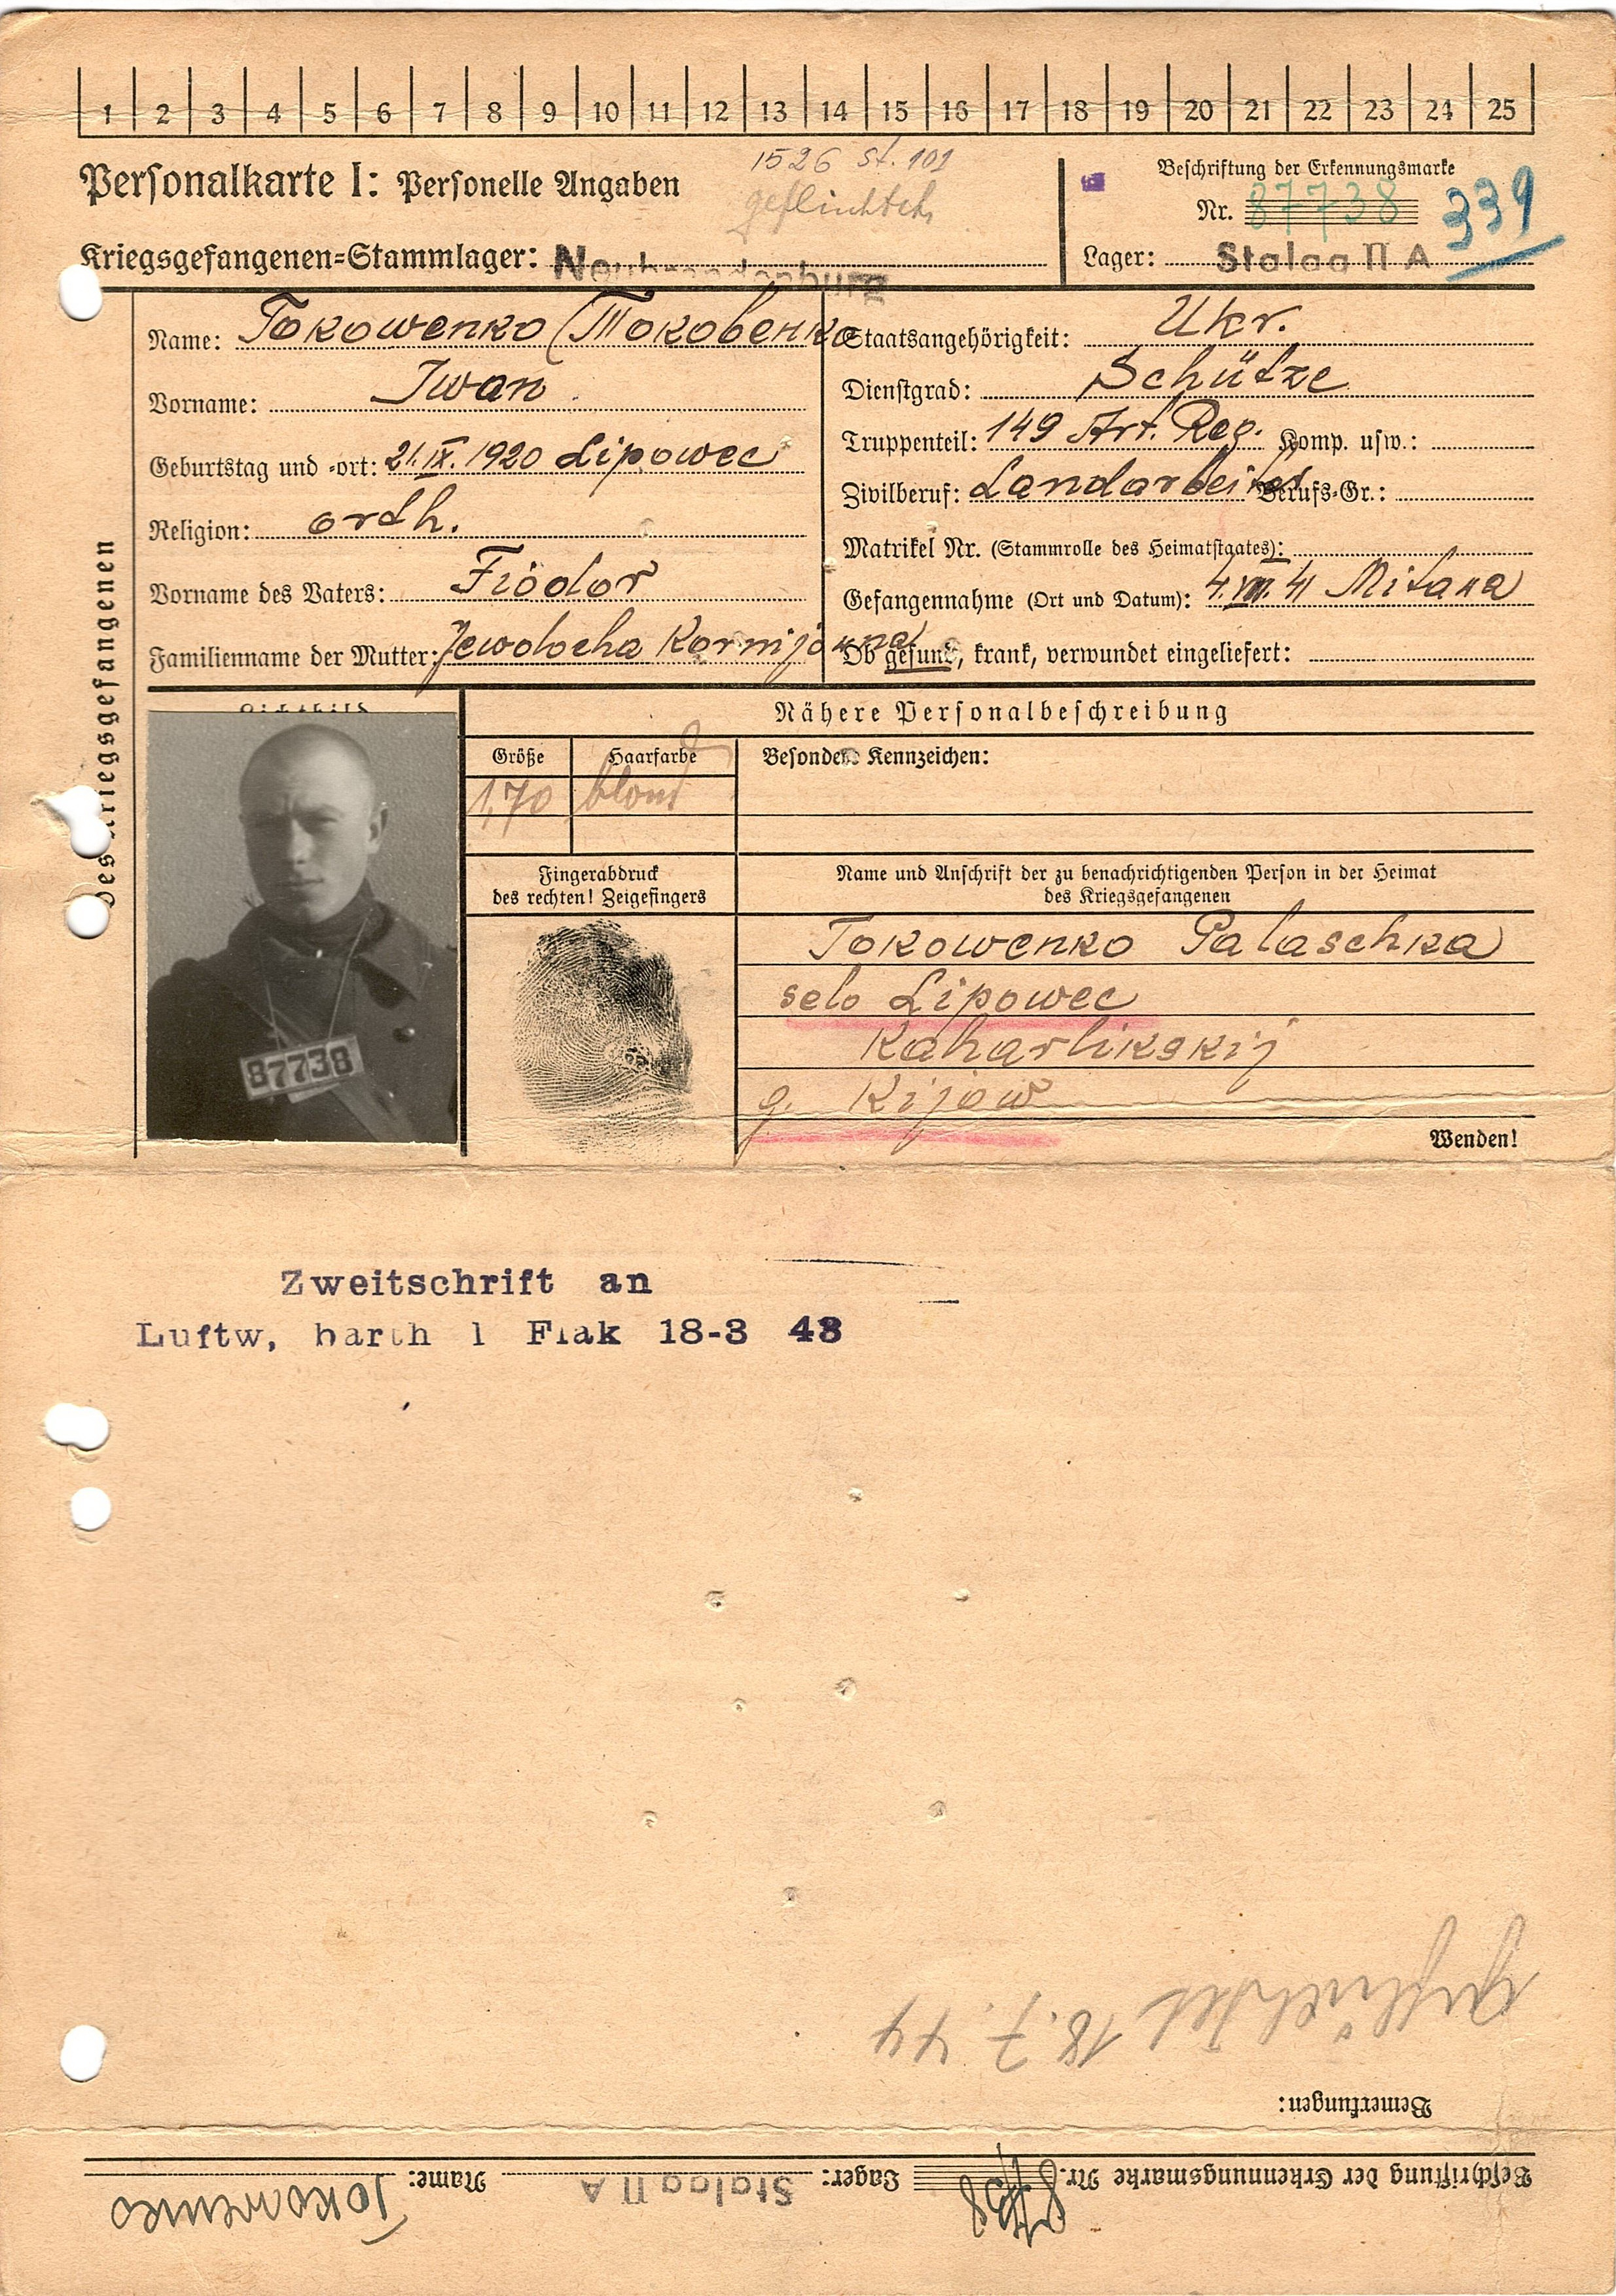 1 2 3 4 5 6 7 8 9 10 11 12 13 14 15 16 17 18 19 20 21 22 23 24 25
1526 St. 101
Personalkarte I: Personelle Angaben
Beschriftung der Erkennungsmarke
Nr. 87738
339
Kriegsgefangenen=Stammlager: Neubrandenburg
Lager: Stalag II A
des Kriegsgefangenen
Name: Tokowenko (Токовенко
Vorname: Iwan
Geburtstag und =ort: 21.IX.1920 Lipowec
Religion: orth.
Vorname des Vaters: Fiodor
Familienname der Mutter: Jewdocha Kornijowna
Staatsangehörigkeit: Ukr.
Dienstgrad: Schütze
Truppenteil: 149 Art. Reg. Komp. usw.:
Zivilberuf: Landarbeiter Berufs=Gr.:
Matrikel Nr. (Stammrolle des Heimatstaates):
Gefangennahme (Ort und Datum): 4.VIII.41 Mitana
Ob gesund, krank, verwundet eingeliefert:
Lichtbild
87738
Nähere Personalbeschreibung
Größe Haarfarbe Besondere Kennzeichen:
1,70 blond
Fingerabdruck
des rechten! Zeigefingers
Name und Anschrift der zu benachrichtigenden Person in der Heimat
des Kriegsgefangenen
Tokowenko Palaschka
selo Lipowec
Kaharlikskij
g. Kijow
Wenden!
Zweitschrift an
Luftw, barth 1 Flak 18-3 43
geflüchtet 18.7.44
Bemerkungen:
Beschriftung der Erkennungsmarke Nr. 87738 Lager: Stalag II A Name: Tokowenko